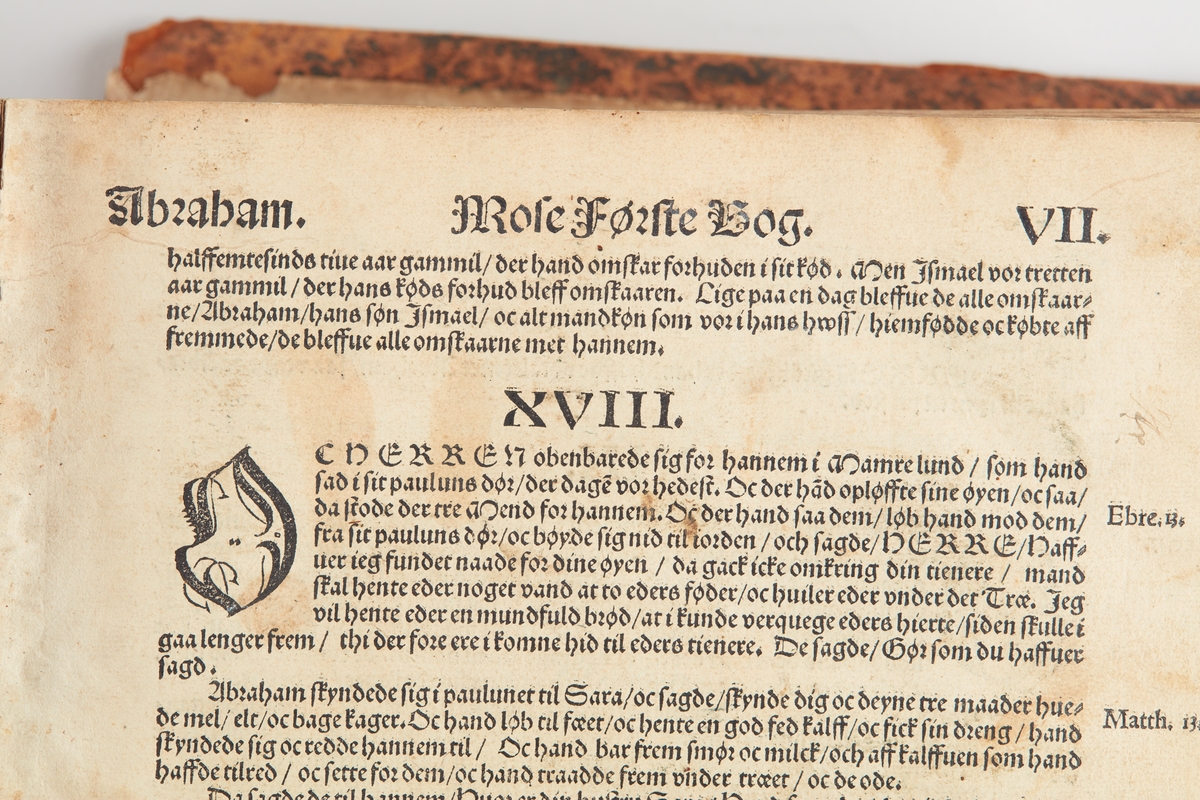 Abraham. Mose Første Bog. VII.
halffemtesinds tiue aar gammil/ der hand omskar forhuden i sit kød. Men Jsmael vor tretten
aar gammil / der hans køds forhud bleff omskaaren. Lige paa en dag bleffue de alle omskaar⸗
ne/ Abraham/ hans søn Jsmael/ oc alt mandkøn som vor i hans hwss / hiemfødde oc købte aff
fremmede/ de bleffue alle omskaarne met hannem.
XVIII.
OC HERREN obenbarede sig for hannem i Mamre lund / som hand
sad i sit pauluns dør/ der dagē vor hedest. Oc der hād opløffte sine øyen/ oc saa/
da stode der tre Mend for hannem. Oc der hand saa dem/ løb hand mod dem/
fra sit pauluns dør/ oc bøyde sig nid til iorden / och sagde/ HERRE/ Haff⸗
uer ieg fundet naade for dine øyen / da gack icke omkring din tienere / mand
skal hente eder noget vand at to eders føder/ oc huiler eder vnder det Træ. Jeg
vil hente eder en mundfuld brød/ at i kunde verquege eders hierte/ siden skulle i
gaa lenger frem / thi der fore ere i komne hid til eders tienere. De sagde/ Gør som du haffuer
sagd.
Abraham skyndede sig i paulunet til Sara/ oc sagde/ skynde dig oc deyne tre maader hue⸗
de mel/ elt/ oc bage kager. Oc hand løb til fæet/ oc hente en god fed kalff/ oc fick sin dreng / hand
skyndede sig oc redde hannem til / Oc hand bar frem smør oc milck/ och aff kalffuen som hand
haffde tilred / oc sette for dem/ oc hand traadde frem vnder træet / oc de ode.
Da sagde de til hannem/ Huor er din
Ebre. 13.
Matth. 13